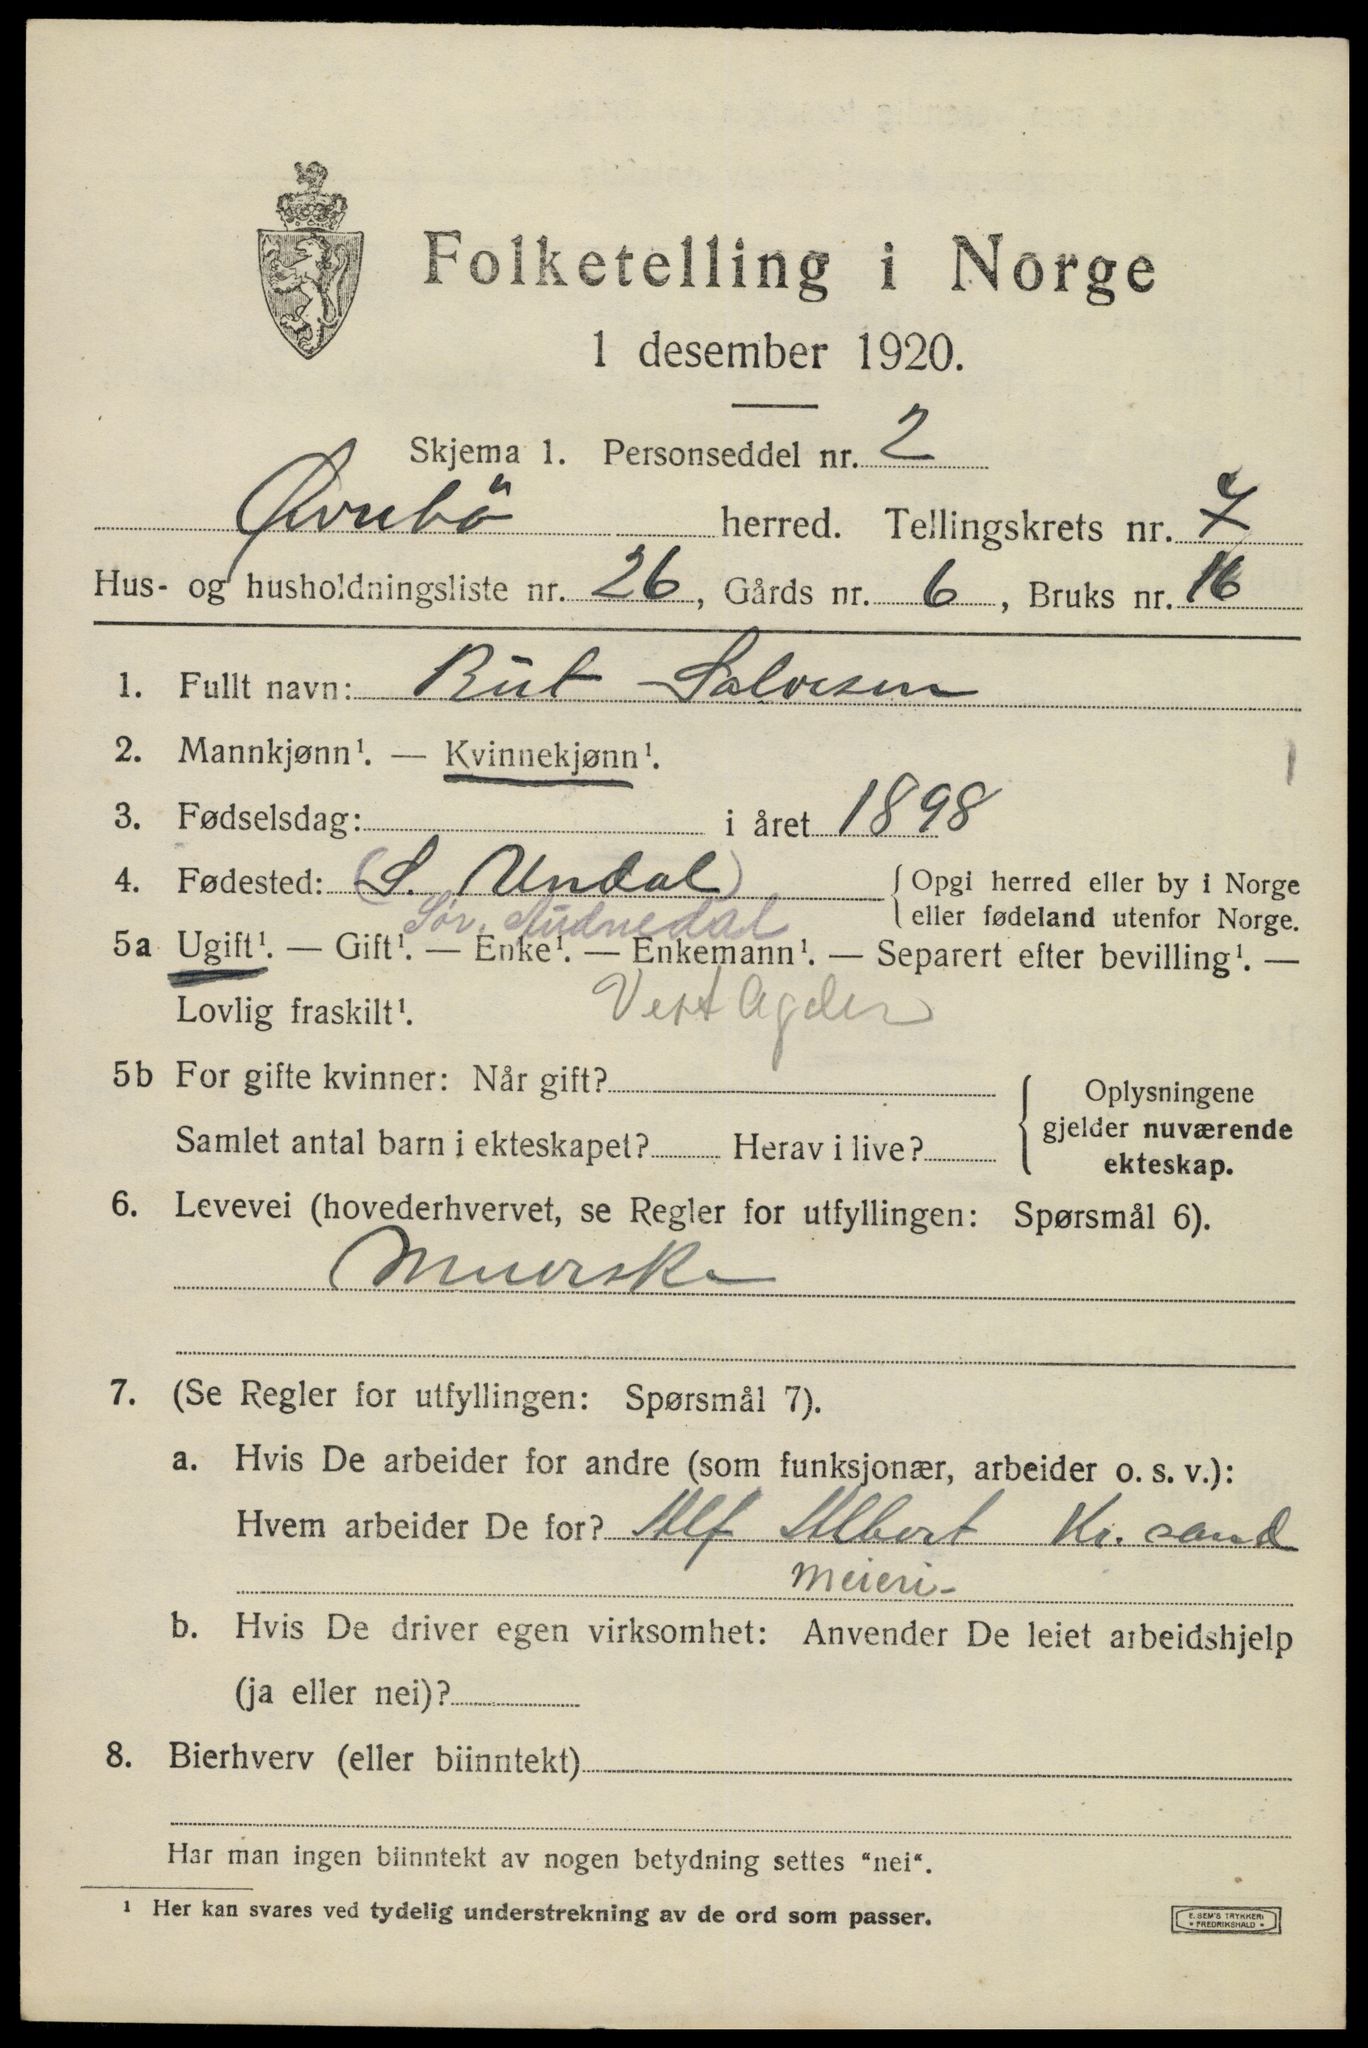 Folketelling i Norge
1 desember 1920.
Skjema 1. Personseddel nr. 2
Øvrebö herred. Tellingskrets nr. 7
Hus- og husholdningsliste nr. 26, Gårds nr. 6, Bruks nr. 16
1. Fullt navn: Rut Salvesen
2. Mannkjønn¹. — Kvinnekjønn¹.
3. Fødselsdag: i året 1898
4. Fødested: (S. Undal) { Opgi herred eller by i Norge
eller fødeland utenfor Norge.
Sør. Audnedal
5a Ugift¹. — Gift¹. — Enke¹. — Enkemann¹. — Separert efter bevilling¹. —
Lovlig fraskilt¹. Vest Agder
5b For gifte kvinner: Når gift? { Oplysningene
gjelder nuværende
Samlet antal barn i ekteskapet? Herav i live?
ekteskap.
6. Levevei (hovederhvervet, se Regler for utfyllingen: Spørsmål 6).
Meierske
7. (Se Regler for utfyllingen: Spørsmål 7).
a. Hvis De arbeider for andre (som funksjonær, arbeider o. s. v.):
Hvem arbeider De for? Alf Albert Kr. sand
Meieri-
b. Hvis De driver egen virksomhet: Anvender De leiet arbeidshjelp
(ja eller nei)?
8. Bierhverv (eller biinntekt)
Har man ingen biinntekt av nogen betydning settes "nei".
¹ Her kan svares ved tydelig understrekning av de ord som passer.
E. SEM'S TRYKKERI
* FREDRIKSHALD *